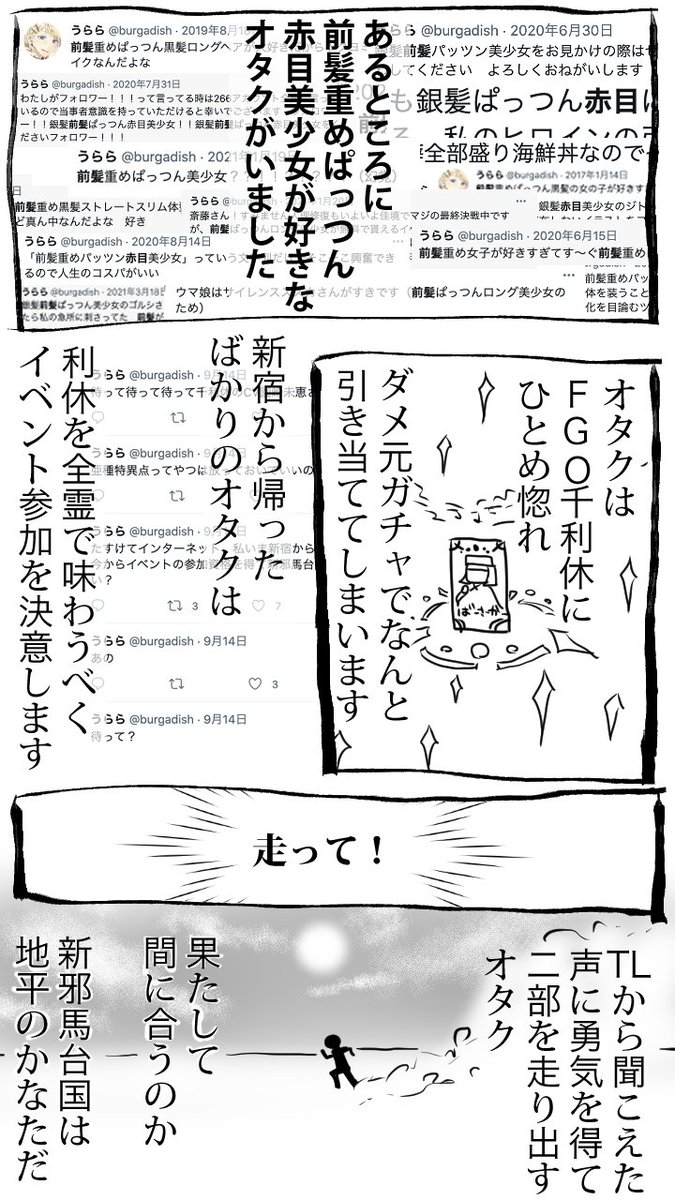 あるところに
前髪重めぱっつん
赤目美少女が好きな
オタクがいました
うらら @burgadish・2019年8月18
前髪重めぱっつん黒髪ロングヘア
イクなんだよな
@burgadish・2020年6月30日
前髪パッツン美少女をお見かけの際は
してください よろしくおねがいします
うらら @burgadish・2020年7月31日
わたしがフォロワー！！！って言ってる時は266
いるので当事者意識を持っていただけると幸いで
ー！！銀髪前髪ぱっつん赤目美少女！！銀髪前
ださいフォロワー！！！
も銀髪ぱっつん赤目に
うらら @burgadish・2021年1月19日
前髪重めぱっつん美少女？
全部盛り海鮮丼なので
@burgadish・2017年1月14日
前髪重めぱっつん黒髪の女の子が好きす
前髪重め黒髪ストレートスリム体
ど真ん中なんだよな 好き
マジの最終決戦中です
うらら @burgadish・2020年8月14日
「前髪重めぱっつん赤目美少女」ってい
るので人生のコスパがいい
うらら @burgadish・2020年6月15日
前髪重め女子が好きすぎてす〜ぐ前髪重め
うらら @burgadish・2021年3月18日
銀髪前髪ぱっつん美少女のゴルシさ
たら私の急所に刺さってた 前髪が
ウマ娘はサイレンススズカさんがすきです（前髪ぱっつんロング美少女の
ため）
前髪重めパッ
体を装うこと
化を目論むツ
オタクは
FGO千利休に
ひとめ惚れ
ダメ元ガチャでなんと
引き当ててしまいます
ばーさーか
新宿から帰った
ばかりのオタクは
利休を全霊で味わうべく
イベント参加を決意します
うらら @burgadish・9月14日
待って待って待って千
うらら @burgadish・9月14日
亜種特異点ってやつは放っておいていいの
うらら @burgadish・9月14日
たすけてインターネット、私いま新宿から
今からイベントの参加資格を得て新邪馬台
い？
3
7
うらら @burgadish・9月14日
あの
3
うらら @burgadish・9月14日
待って？
走って！
TLから聞こえた
声に勇気を得て
二部を走り出す
オタク
果たして
間に合うのか
新邪馬台国は
地平のかなただ